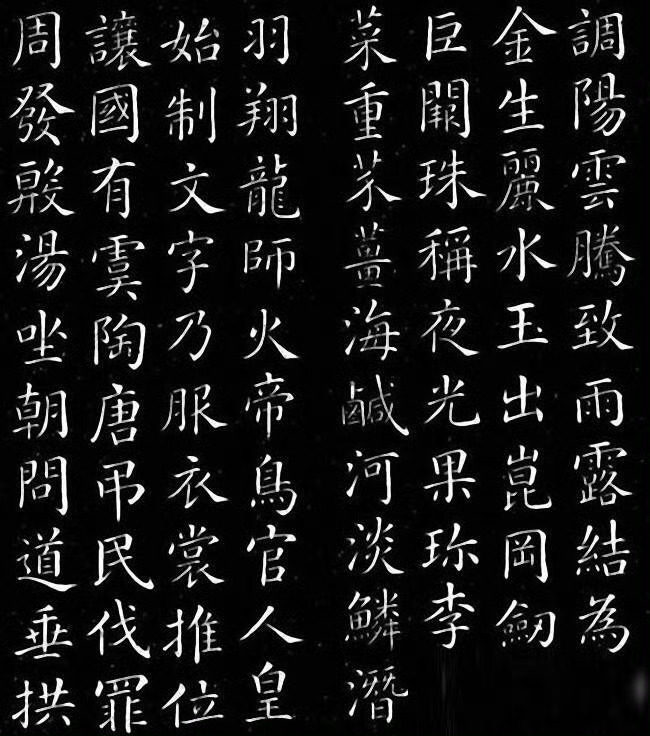 調陽雲騰致雨露結為
金生麗水玉出崑岡劒
巨闕珠稱夜光果珎李
菜重芥薑海鹹河淡鱗潛
羽翔龍師火帝鳥官人皇
始制文字乃服衣裳推位
讓國有虞陶唐吊民伐罪
周發殷湯坐朝問道垂拱